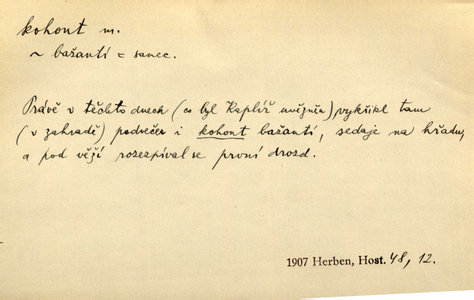 kohout m.
~ bažantí = samec.
Právě v těchto dnech (co byl Kaplíř uvězněn), vykřikl tam
(v zahradě) podvečer i kohout bažantí, sedaje na hřadu,
a pod věží rozezpíval se první drozd.
1907 Herben, Host. 48, 12.